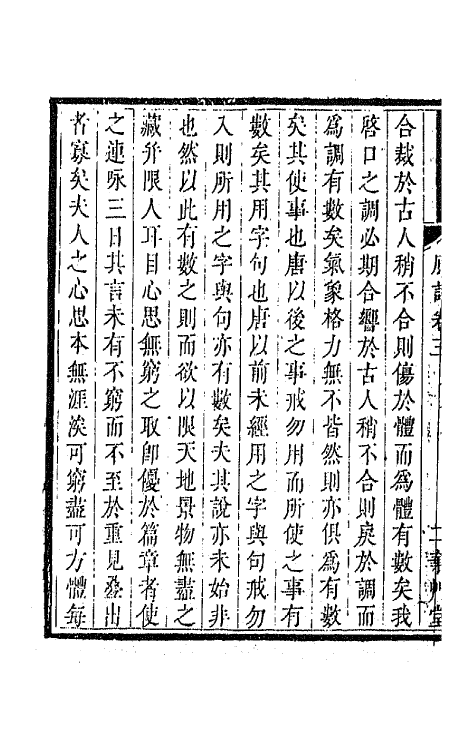 合裁於古人稍不合則傷於體而爲體有數矣我
啓口之調必期合響於古人稍不合則戾於調而
爲調有數矣氣象格力無不皆然則亦俱爲有數
矣其使事也唐以後之事戒勿用而所使之事有
數矣其用字句也唐以前未經用之字與句戒勿
入則所用之字與句亦有數矣夫其說亦未始非
也然以此有數之則而欲以限天地景物無盡之
藏幷限人耳目心思無窮之取卽優於篇章者使
之連咏三日其言未有不窮而不至於重見疊出
者寡矣夫人之心思本無涯涘可窮盡可方體每
原詩卷三
二